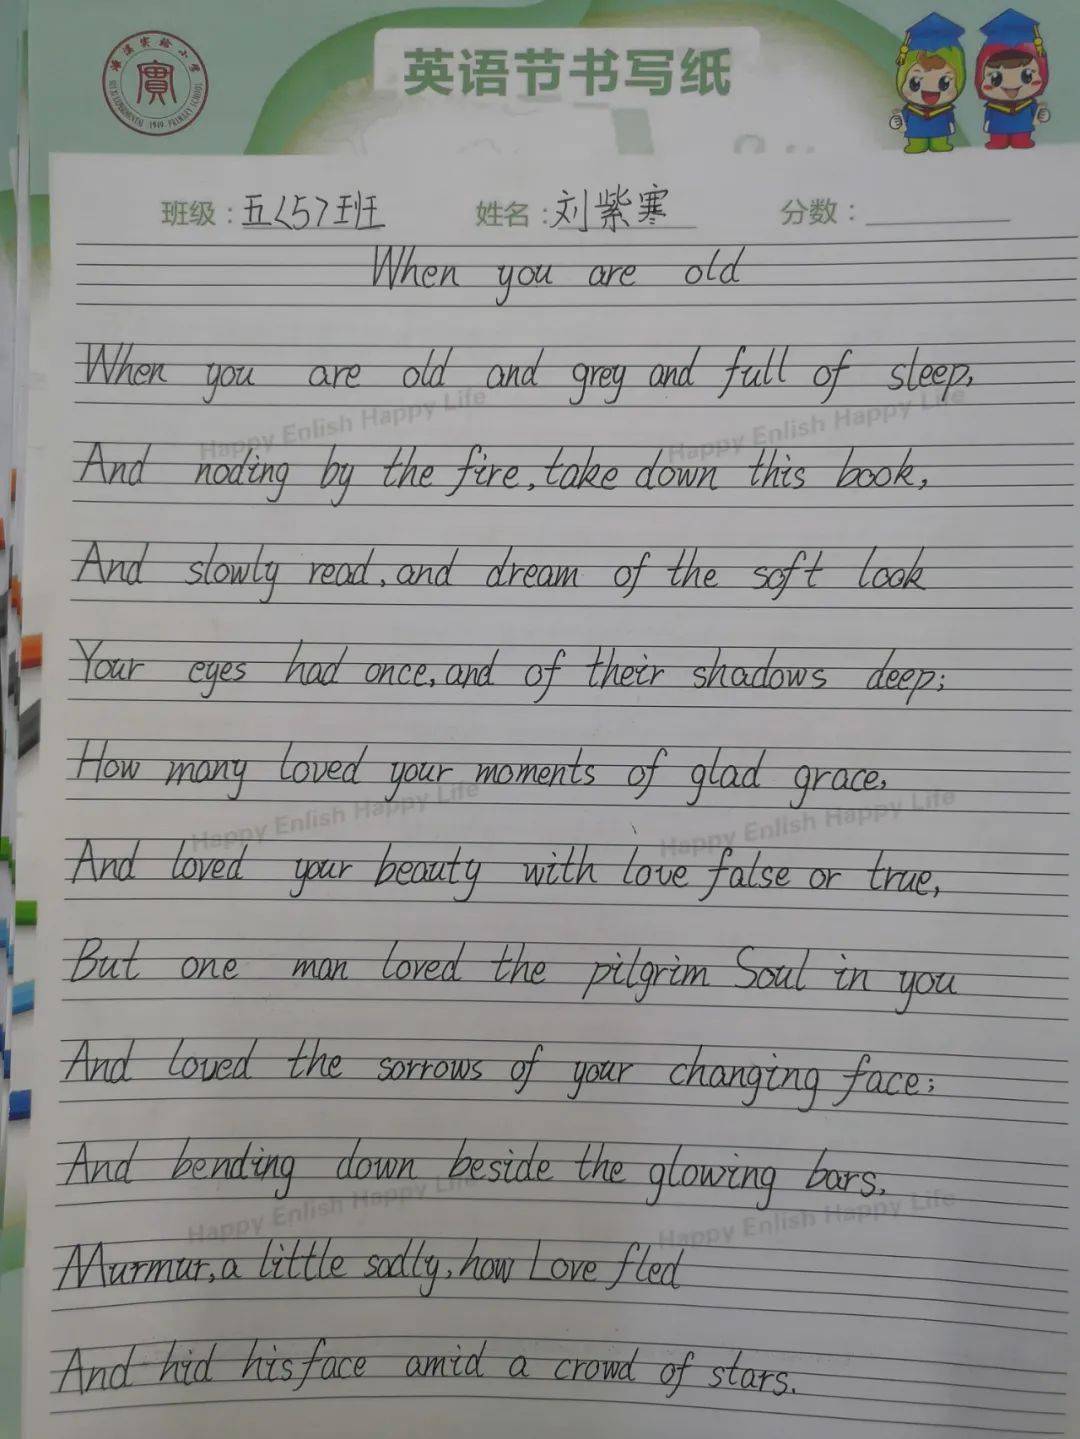 英语节书写纸
班级：五<5>班 姓名：刘紫寒 分数：
When you are old
When you are old and grey and full of sleep,
Happy Enlish Happy Life Happy Enlish Happy Life
And noding by the fire, take down this book,
And slowly read, and dream of the soft look
Your eyes had once, and of their shadows deep;
How many loved your moments of glad grace,
Happy Enlish Happy Life Happy Enlish Happy Life
And loved your beauty with love false or true,
But one man loved the pilgrim Soul in you
And loved the sorrows of your changing face;
And bending down beside the glowing bars,
Happy Enlish Happy Life Happy Enlish Happy Life
Murmur, a little sadly, how Love fled
And hid his face amid a crowd of stars.